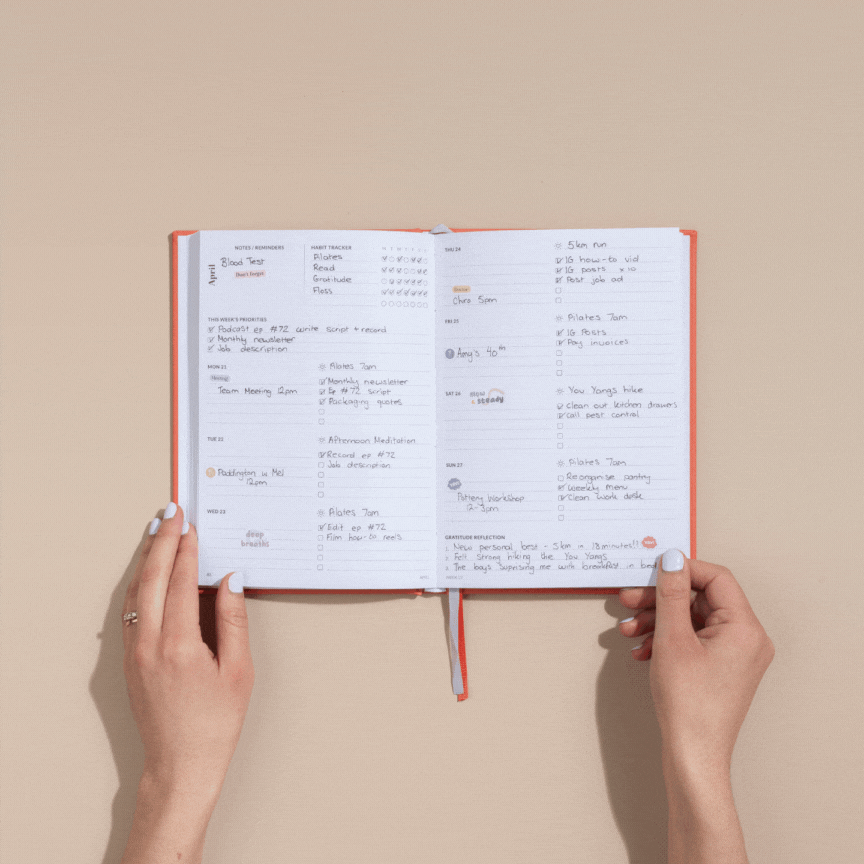 April
NOTES / REMINDERS
Blood Test
Don't forget
HABIT TRACKER
M T W T F S S
Pilates
Read
Gratitude
Floss
THIS WEEK'S PRIORITIES
Podcast ep #72 write script + record
Monthly newsletter
Job description
MON 21
Meeting
Team Meeting 12pm
Pilates 7am
Monthly newsletter
Ep #72 script
Packaging quotes
TUE 22
Paddington w Mel
12pm
Afternoon Meditation
Record ep #72
Job description
WED 23
deep
breaths
Pilates 7am
Edit ep #72
Film how-to reels
THU 24
Chiro 5pm
5km run
IG how-to vid
IG posts x10
Post job ad
FRI 25
Amy's 40th
Pilates 7am
IG Posts
Pay invoices
SAT 26
slow
& steady
You Yangs hike
Clean out kitchen drawers
Call pest control
SUN 27
Pottery Workshop
12-3pm
Pilates 7am
Reorganise pantry
Weekly menu
Clean work desk
GRATITUDE REFLECTION
1. New personal best - 5km in 18 minutes!!
2. Felt strong hiking the You Yangs
3. The boys suprising me with breakfast in bed